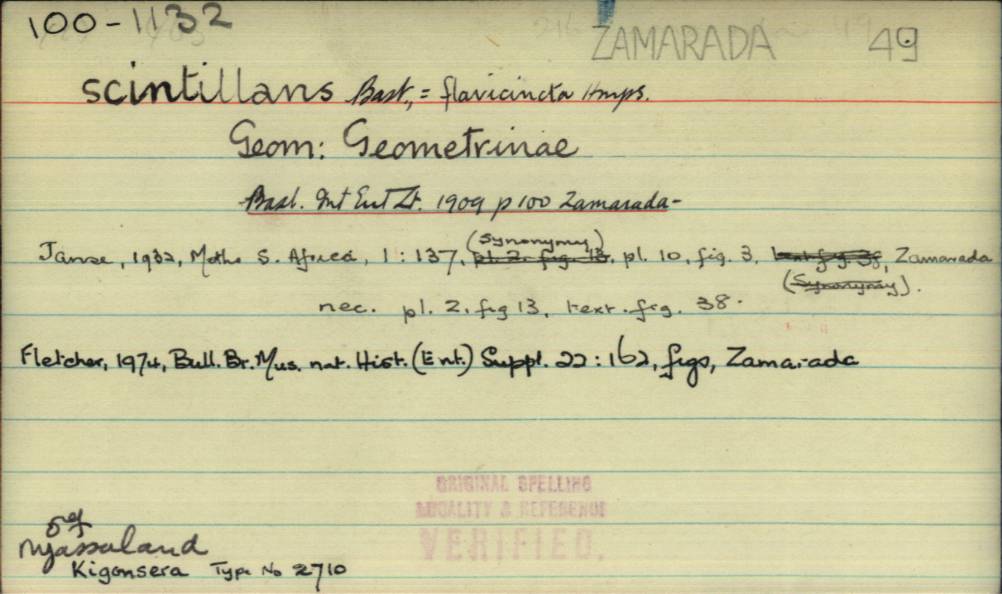 100-1132
ZAMARADA 49
scintillans Bast., = flavicincta Hmps.
Geom: Geometrinae
Bast. Int Ent Zt. 1909 p 100 Zamarada-
Janse, 1932, Moths S. Africa, 1:137, (Synonymy) pl. 2. fig. 13, pl. 10, fig. 3, text fig 38, Zamarada
(Synonymy).
nec. pl. 2. fig 13, text. fig. 38.
Fletcher, 1974, Bull. Br. Mus. nat. Hist. (Ent.) Suppl. 22:162, figs, Zamarada
ORIGINAL SPELLING
LOCALITY & REFERENCE
VERIFIED.
Nyassaland
Kigonsera Type No 2710